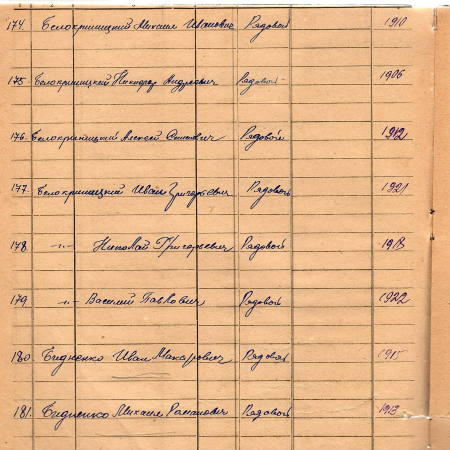 174. Белокриницкий Михаил Иванович Рядовой 1910
175 Белокриницкий Никифор Андреевич Рядовой 1906
176. Белокриницкий Алексей Рядовой 1912
177. Белокриницкий Иван Григорьевич Рядовой 1921
178 -"- Николай Григорьевич Рядовой 1918
179 -"- Василий Павлович Рядовой 1922
180. Бидненко Иван Макарович Рядовой 1915
181. Бидненко Михаил Романович Рядовой 1913